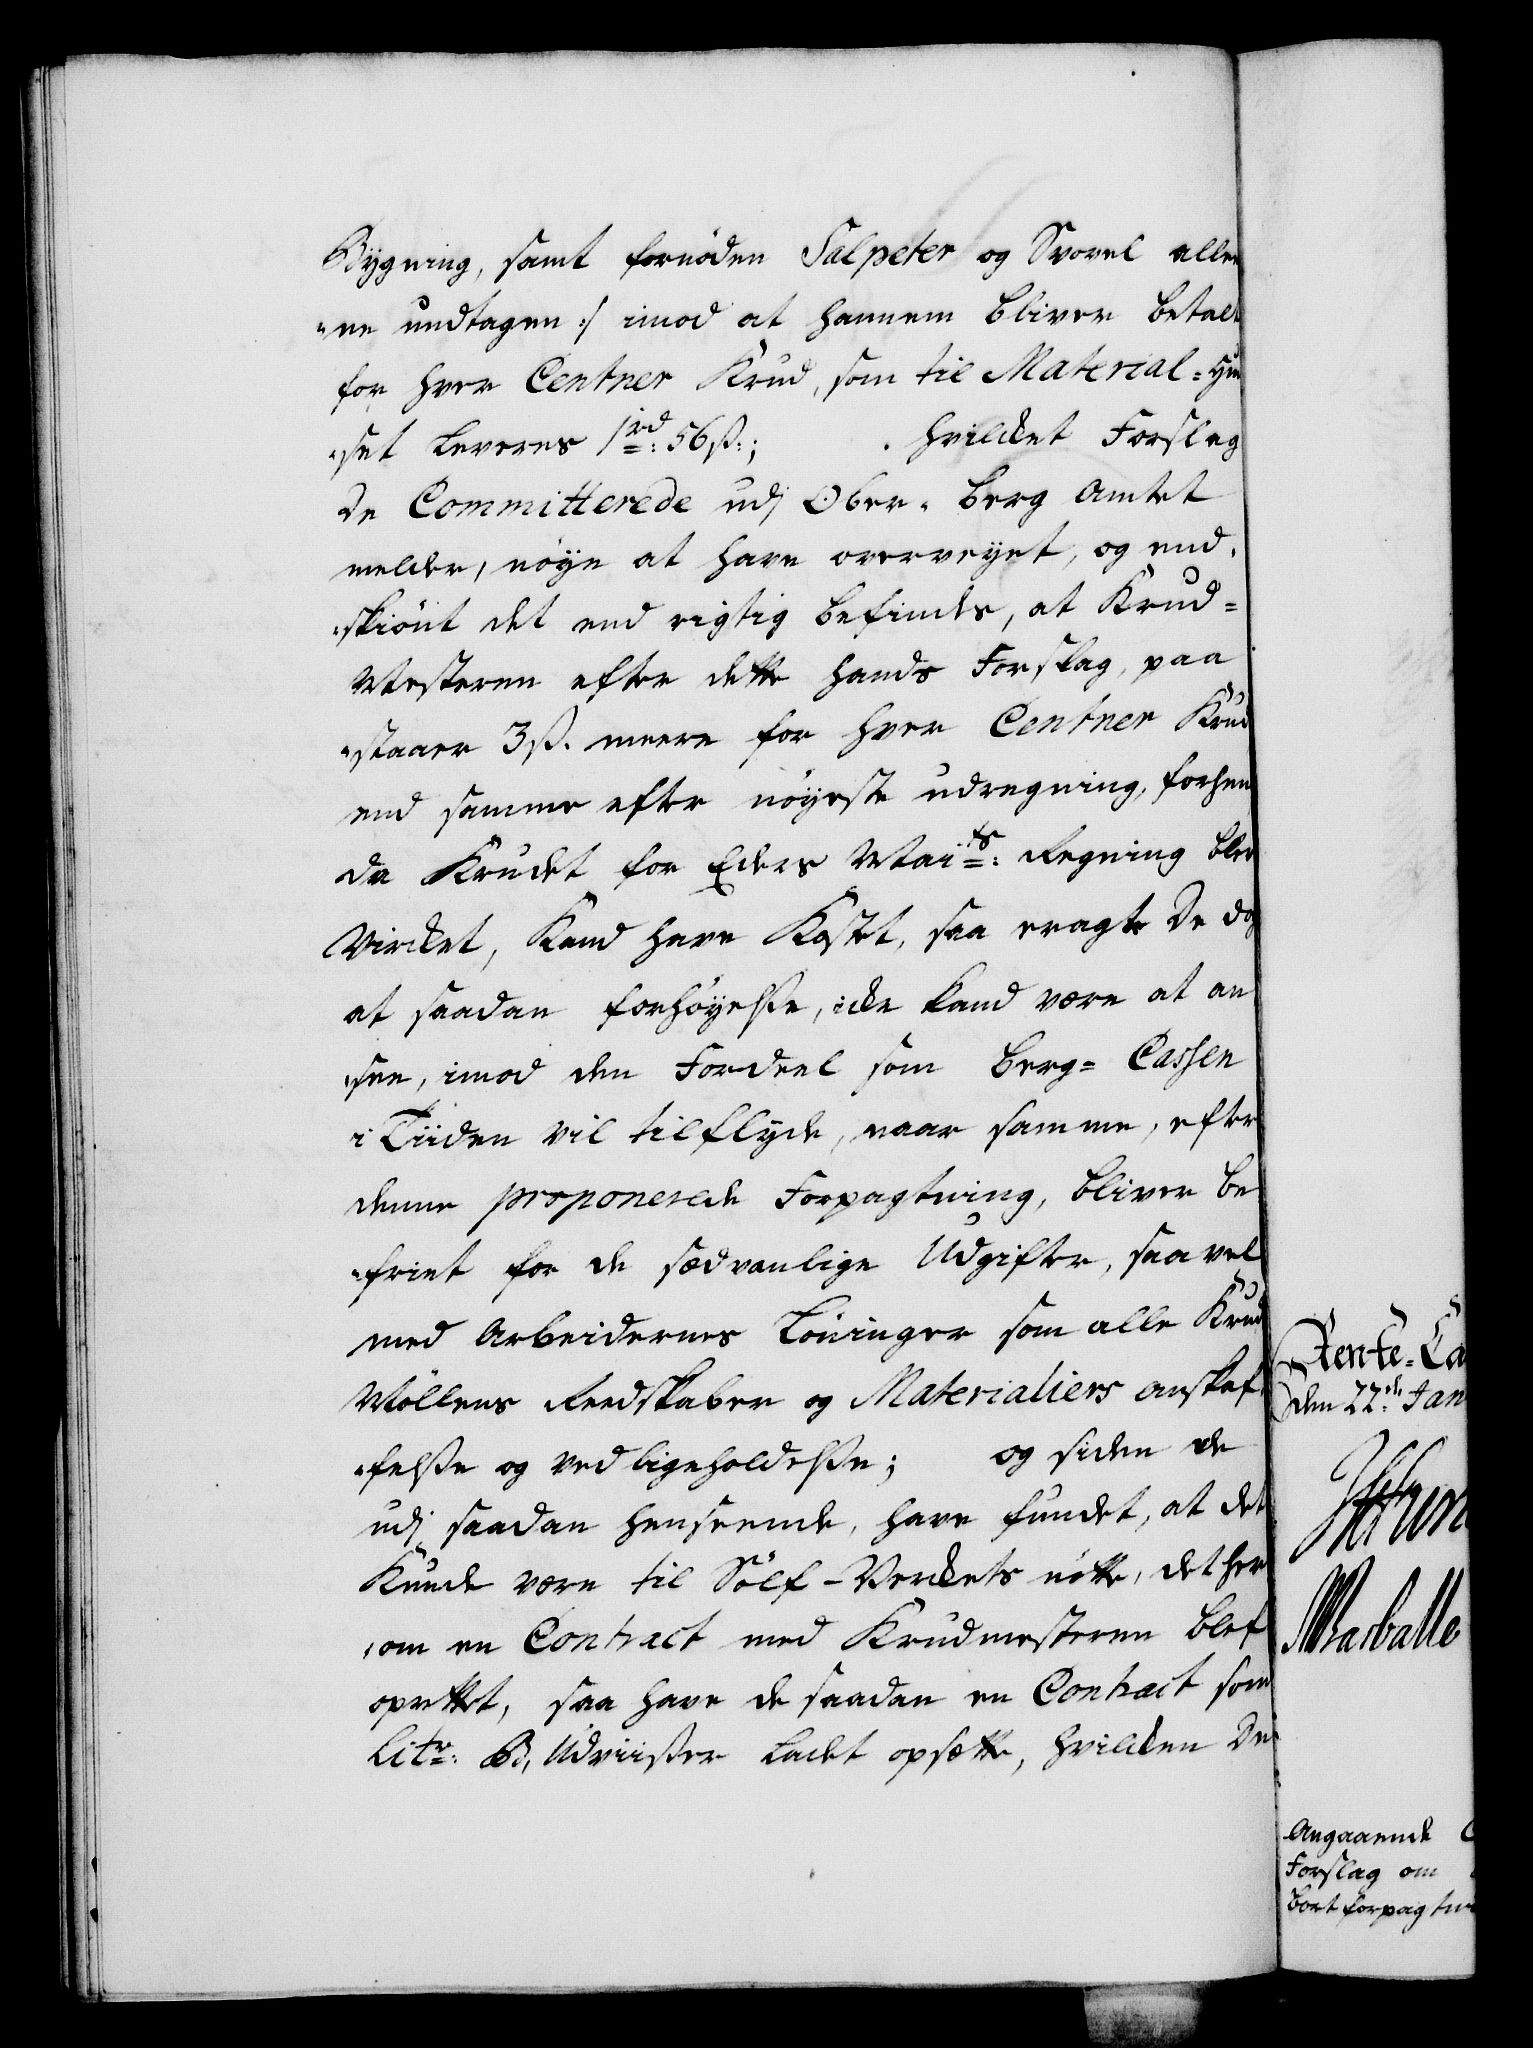 Bygning, samt fornöden Salpeter og Svovel alle
"ne undtagen :/ imod at hannem bliver betalt
for hver Centner Krud, som til Material-Huu
"set leveres 1 rd: 56 ß.; hvilcket Forslag
De Committerede udj Ober-Berg Amtet
melder, nöye at have overveyet, og end-
"skiönt det end rigtig befindes, at Krud-
Mesteren efter dette hands Forslag, paa
"staaer 3 ß. meere for hver Centner Krud
end samme efter nöyeste udregning, forhen
da Krudet for Eders Maits: Regning blev
Vircket, Kand have Kostet, saa eragte De dog
at saadan forhöyelße, icke kand være at an
"see, imod den Fordeel som Berg-Cassen
i Tiiden vil tilflyde, naar samme, efter
denne proponerede Forpagtning, bliver be
"friet for de sædvanlige Udgifter, saavel
med Arbeidernes Löninger som alle Krud
Möllens Reedskaber og Materialiers anskaf
"felße og vedligeholdelße; og siden de
udj saadan henseende, have fundet, at det
Kunde være til Sölf-Verckets nötte, det her
"om en Contract med Krudmesteren blef
oprettet, saa have de saadan en Contract som
Litr: B, Udviißer ladet opsætte, hvilcken De
Rente-Ca
den 22de Jan
Angaaende
Forslag om
bortforpagtni